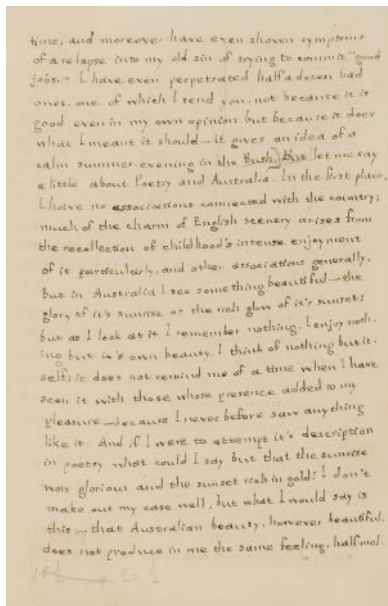 time, and moreover have even shown symptoms
of a relapse into my old sin of trying to commit "good
jobs." I have even perpetrated half a dozen bad
ones, one of which I send you, not because it is
good even in my own opinion but because it does
what I meant it should — it gives an idea of a
calm summer evening in the Bush.) But let me say
a little about Poetry and Australia. In the first place,
I have no associations connected with the country;
much of the charm of English scenery arises from
the recollection of childhood's intense enjoyment
of it particularly, and other associations generally.
But in Australia I see something beautiful — the
glory of it's sunrise or the rich glow of it's sunset;
but as I look at it I remember nothing. I enjoy noth-
ing but it's own beauty. I think of nothing but it-
self; it does not remind me of a time when I have
seen it with those whose presence added to my
pleasure — because I never before saw anything
like it. And if I were to attempt it's description
in poetry what could I say but that the sunrise
was glorious and the sunset rich in gold? I don't
make out my case well, but what I would say is
this — that Australian beauty, however beautiful,
does not produce in me the same feeling, half mel-